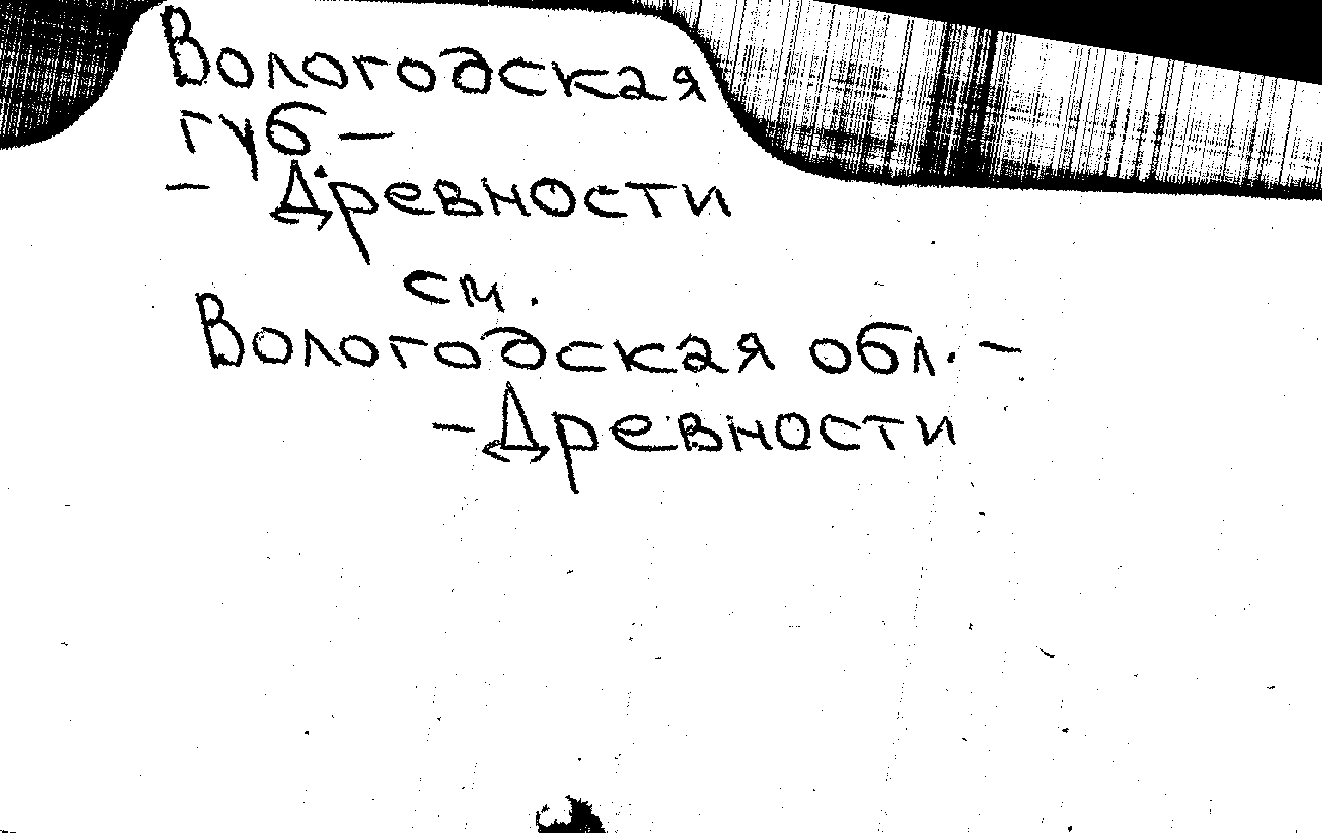 Вологодская
губ. -
- Древности
см.
Вологодская обл. -
- Древности